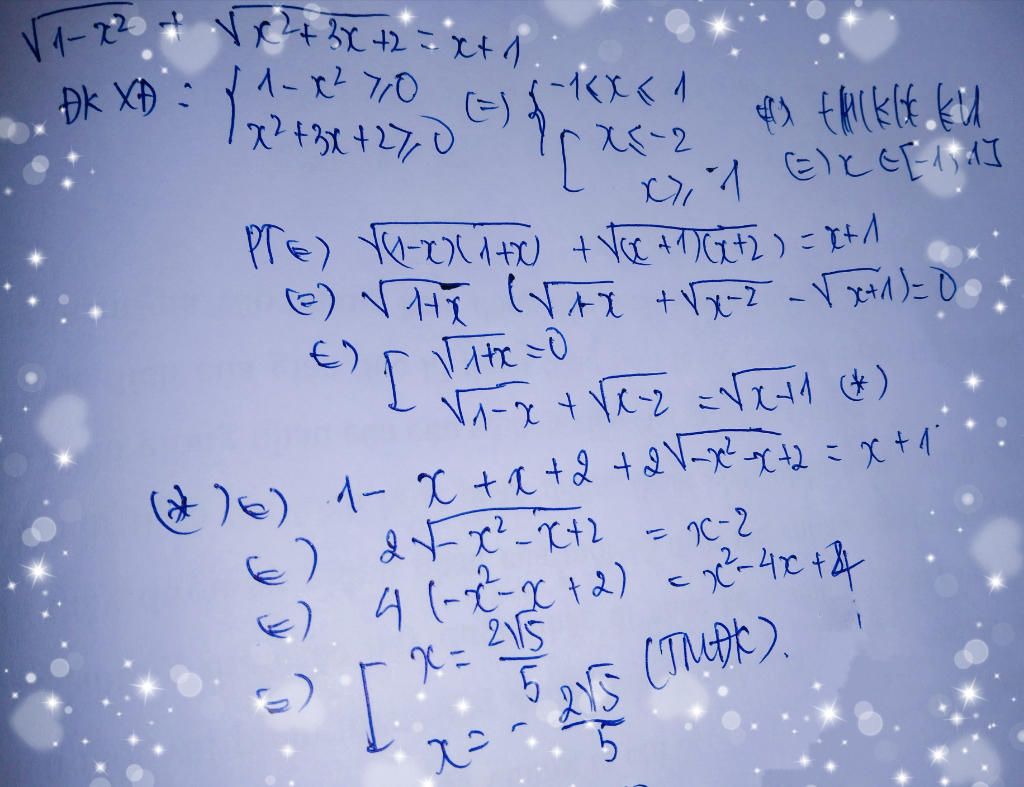 √(1-x²) + √(x²+3x+2) = x+1
ĐKXĐ: { 1-x² ≥ 0 (=) { -1 ≤ x ≤ 1
x²+3x+2 ≥ 0 [ x ≤ -2
x ≥ -1 (=) x ∈ [-1; 1]
PT (=) √((1-x)(1+x)) + √((x+1)(x+2)) = x+1
(=) √(1+x) (√(1-x) + √(x-2) - √(x+1)) = 0
(=) [ √(1+x) = 0
√(1-x) + √(x-2) = √(x+1) (*)
(*) (=) 1 - x + x + 2 + 2√(-x²-x+2) = x + 1
(=) 2√(-x²-x+2) = x-2
(=) 4(-x²-x+2) = x²-4x+4
=) [ x = 2√5/5 (TMĐK).
x = -2√5/5